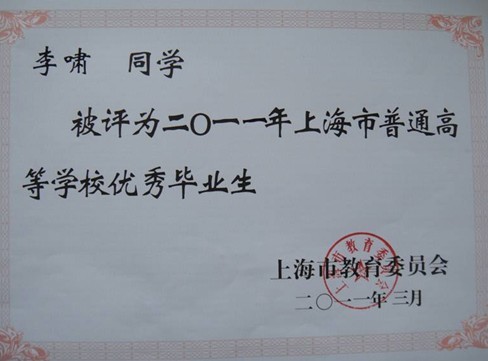 李啸 同学
被评为二〇一一年上海市普通高
等学校优秀毕业生
上海市教育委员会
二〇一一年三月
上海市教育委员会